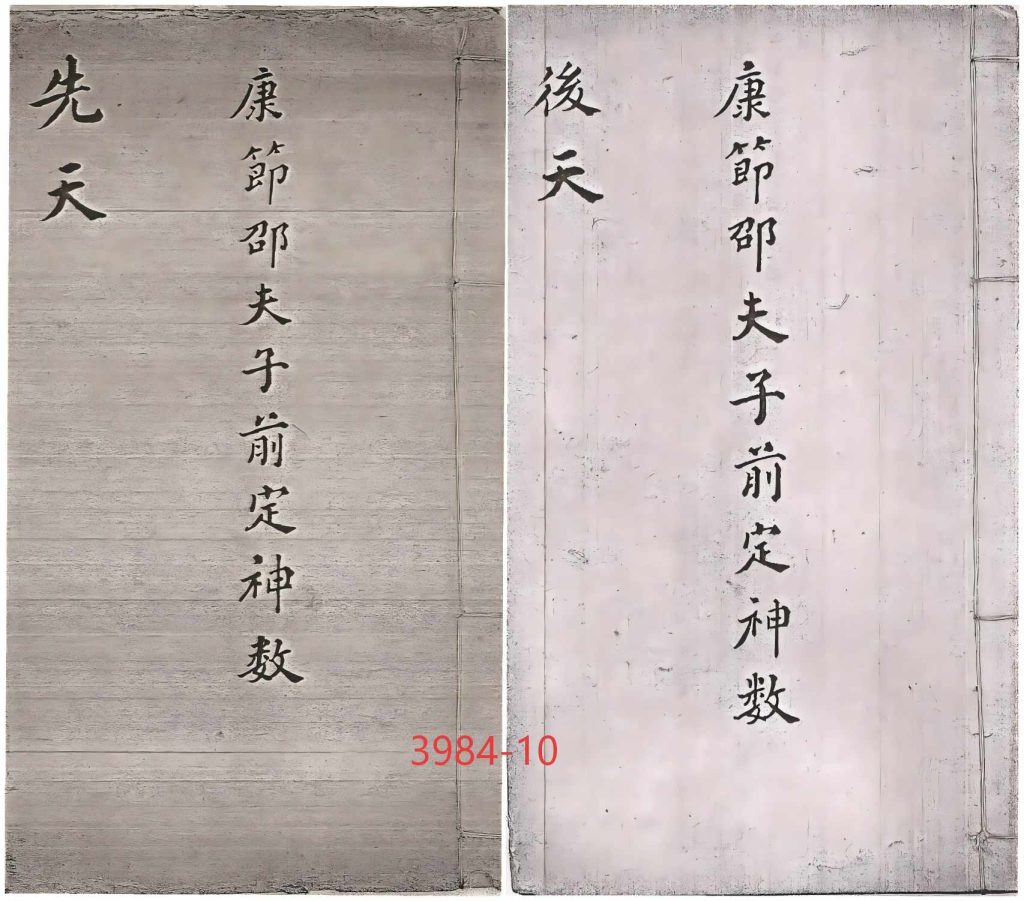 康節邵夫子前定神数
先天
康節邵夫子前定神数
後天
3984-10